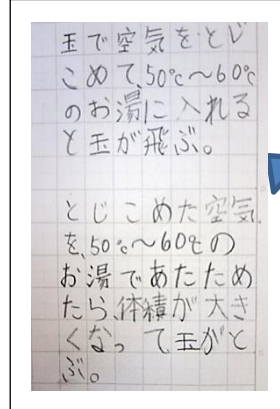 玉で空気をとじ
こめて、50℃〜60℃
のお湯に入れる
と玉が飛ぶ。
とじこめた空気
を、50℃〜60℃の
お湯であたため
たら、体積が大き
くなって玉がと
ぶ。